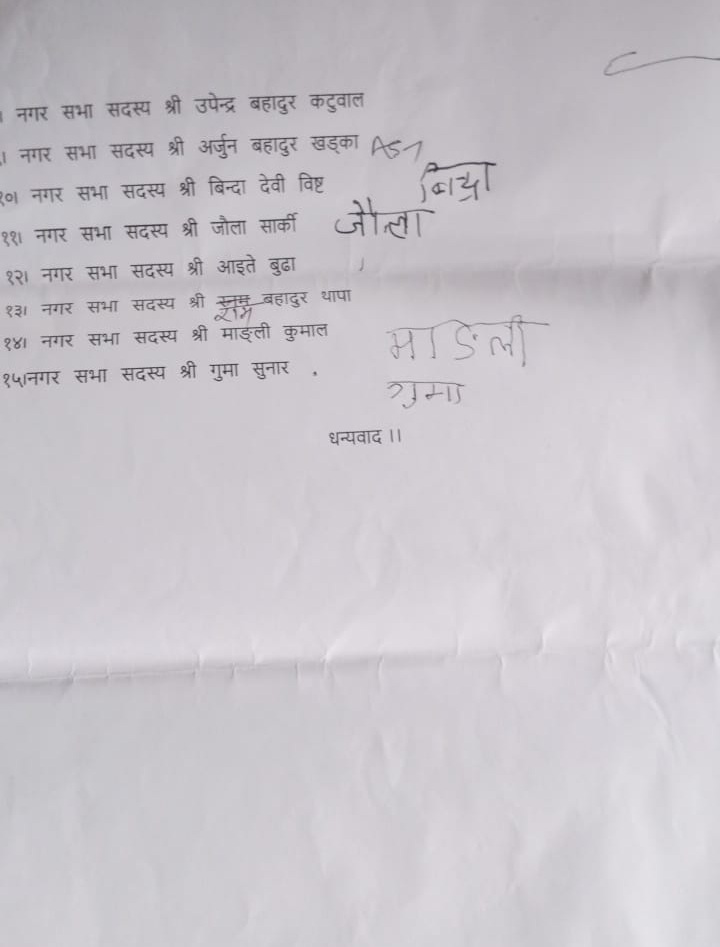 । नगर सभा सदस्य श्री उपेन्द्र बहादुर कटुवाल
। नगर सभा सदस्य श्री अर्जुन बहादुर खड्का
१०। नगर सभा सदस्य श्री बिन्दा देवी विष्ट
११। नगर सभा सदस्य श्री जौला सार्की जौला
१२। नगर सभा सदस्य श्री आइते बुढा
१३। नगर सभा सदस्य श्री राम बहादुर थापा
१४। नगर सभा सदस्य श्री माङ्ली कुमाल माङली
१५।नगर सभा सदस्य श्री गुमा सुनार . गुमा
धन्यवाद ।।